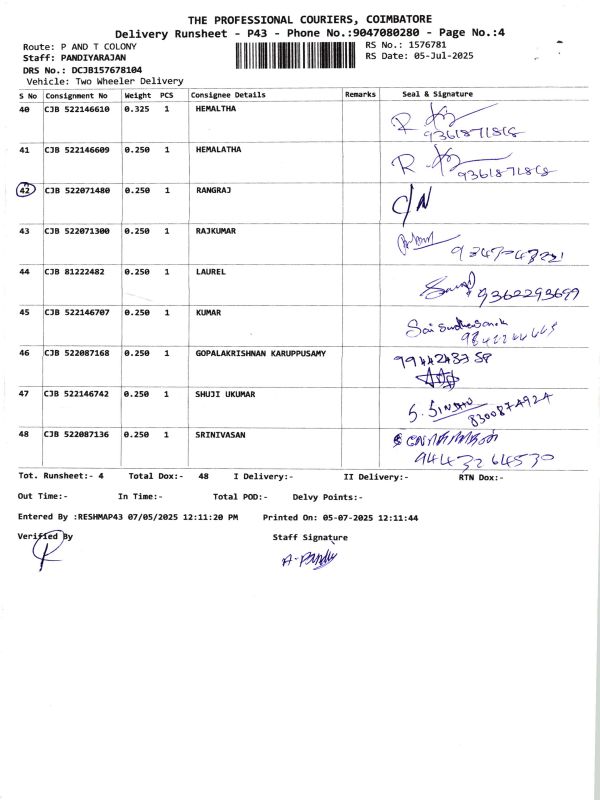 THE PROFESSIONAL COURIERS, COIMBATORE
Delivery Runsheet - P43 - Phone No.:9047080280 - Page No.:4
Route: P AND T COLONY
RS No.: 1576781
Staff: PANDIYARAJAN
RS Date: 05-Jul-2025
DRS No.: DCJB157678104
Vehicle: Two Wheeler Delivery
S No Consignment No Weight PCS Consignee Details Remarks Seal & Signature
40 CJB 522146610 0.325 1 HEMALTHA
9361871868
41 CJB 522146609 0.250 1 HEMALATHA
9361871868
42 CJB 522071480 0.250 1 RANGRAJ C/N
43 CJB 522071300 0.250 1 RAJKUMAR
44 CJB 81222482 0.250 1 LAUREL
9362293699
45 CJB 522146707 0.250 1 KUMAR
46 CJB 522087168 0.250 1 GOPALAKRISHNAN KARUPPUSAMY
47 CJB 522146742 0.250 1 SHUJI UKUMAR
8300874924
48 CJB 522087136 0.250 1 SRINIVASAN
9443264530
Tot. Runsheet:- 4 Total Dox:- 48 I Delivery:- II Delivery:- RTN Dox:-
Out Time:- In Time:- Total POD:- Delvy Points:-
Entered By :RESHMAP43 07/05/2025 12:11:20 PM Printed On: 05-07-2025 12:11:44
Verified By Staff Signature
A-Pandi